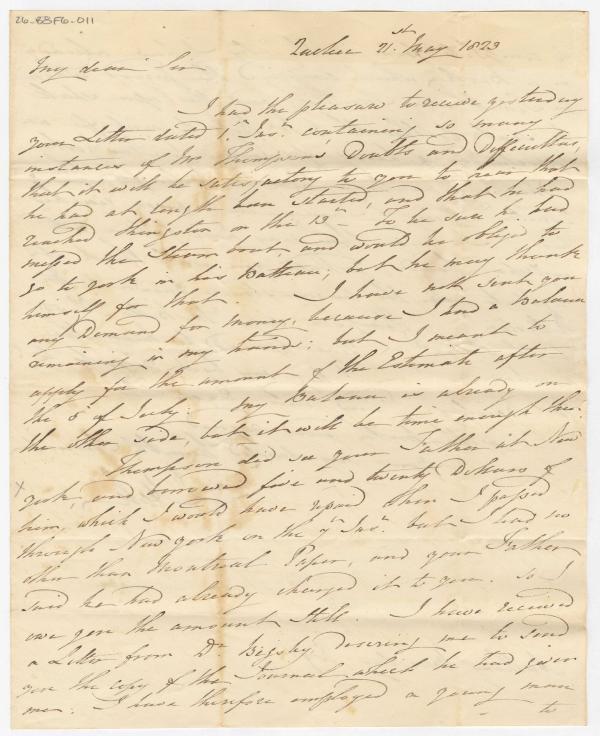 26-BBF6-011
Quebec 21st May 1823
My dear Sir
I had the pleasure to receive yesterday
your Letter dated 1st Inst. containing so many
instances of Mr Thompson's Doubts and Difficulties,
that it will be satisfactory to you to hear that
he had at length been started, and that he had
reached Kingston on the 13th – To be sure he had
missed the Steam boat, and would be obliged to
go to york in his Batteau; but he may thank
himself for that. I have not sent you
any Demand for money, because I had a Balance
remaining in my hands; but I meant to
apply for the amount of the Estimate after
the 5th of July. My Balance is already on
the other side, but it will be time enough then.
Thompson did see your Father at New
york, and borrowed five and twenty Dollars of
him, which I would have repaid when I passed
through New york on the 7th Inst. but I had no
other than Montreal Paper, and your Father
said he had already charged it to you. So I
owe you the amount still. I have received
a Letter from Dr Bigsby desiring me to send
you the copy of the Journal which he had given
me. I have therefore employed a young man
to